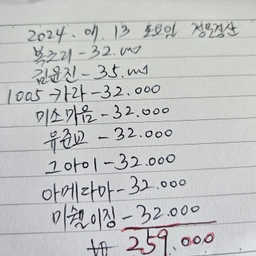 2024. 07. 13 토요일 정모정산
복조리 - 32.000
김윤진 - 35.000
1005 → 가라 - 32.000
미소마음 - 32.000
유준교 - 32.000
그아이 - 32.000
아메리마 - 32.000
미쉘이징 - 32.000
259.000